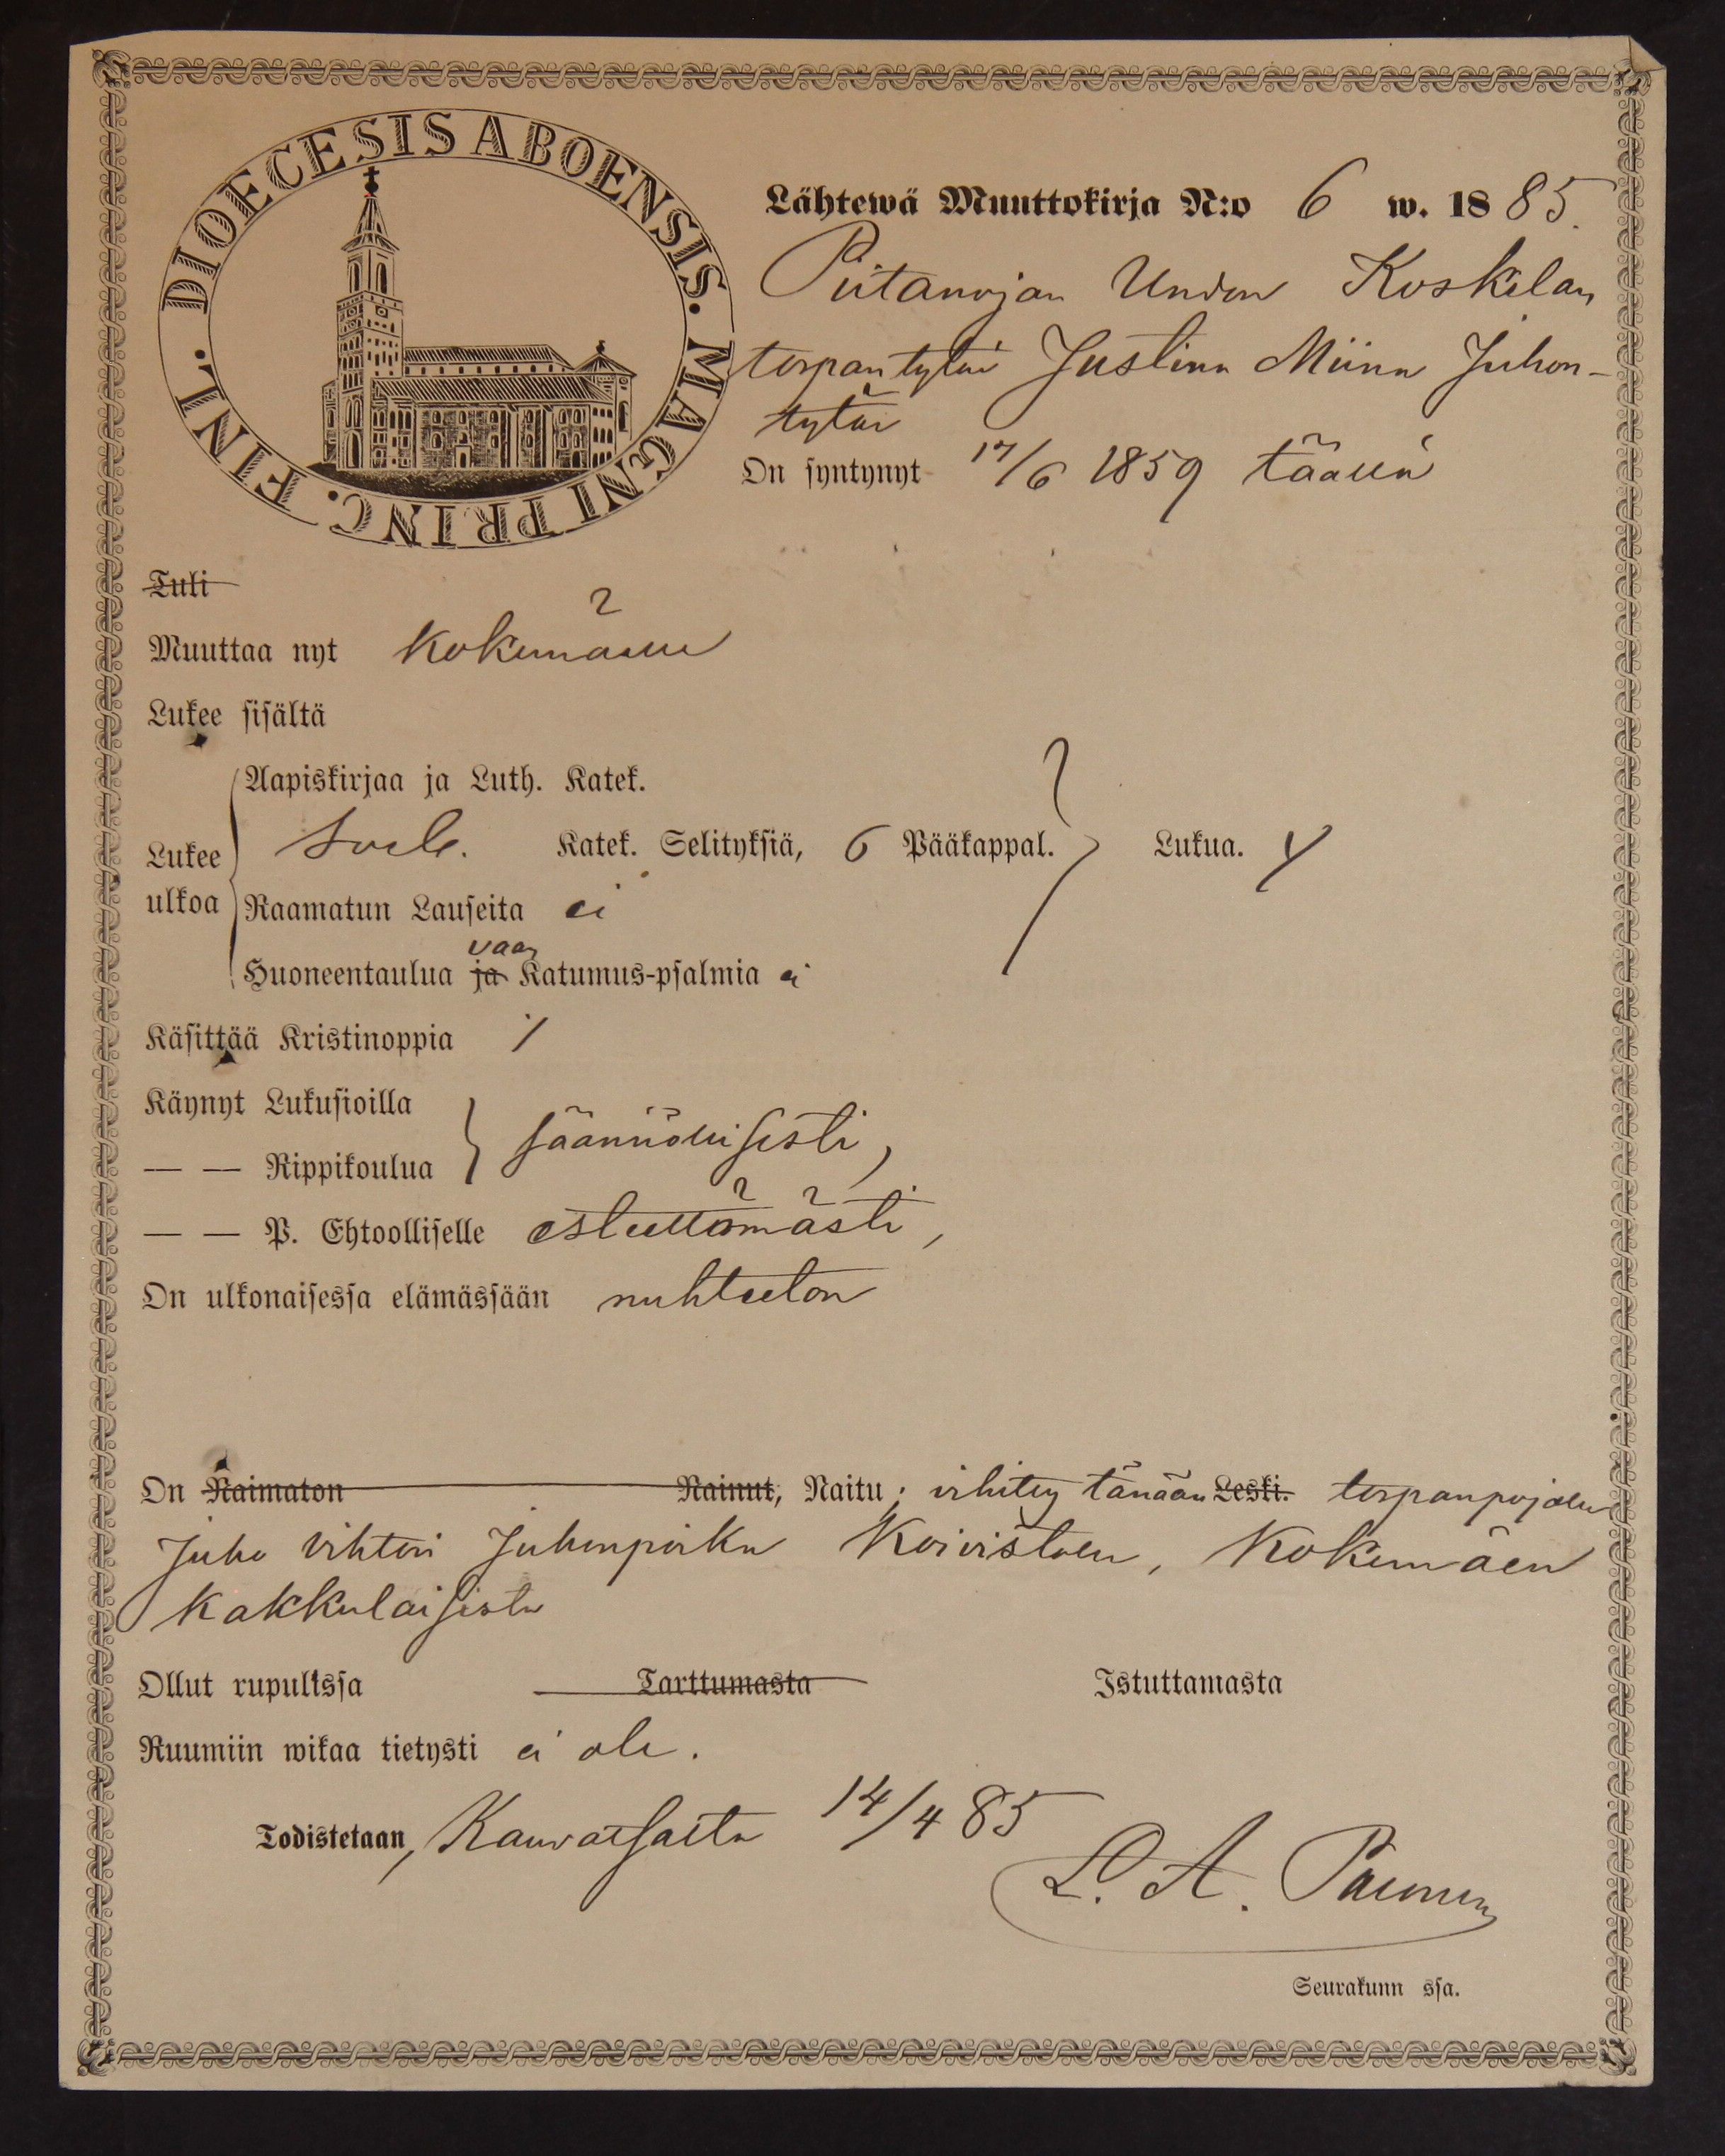 DIOECESIS ABOENSIS. MAGNI PRINC. FINL.
Lähtewä Muuttokirja N:o 6 w. 1885.
Piitanojan Undon Koskelan
torpantytär Justina Miina Juhon-
tytär
On syntynyt 17/6 1859 täällä
Tuli
Muuttaa nyt Kokemäelle
Lukee sisältä
Aapiskirjaa ja Luth. Katek.
Lukee ulkoa Katek. Selityksiä, 6 Pääkappal. Lukua.
Raamatun Lauseita ei
vaan
Huoneentaulua ja Katumus-psalmia ei
Käsittää Kristinoppia
Käynyt Lukusioilla
— — Rippikoulua säännöllisesti,
— — P. Ehtoolliselle esteettömästi,
On ulkonaisessa elämässään nuhteeton
On Naimaton Nainut, Naitu; vihitty tänään Leski. torpanpojalle
Juho Vihtori Juhonpoika Koivistolle, Kokemäen
Kakkulaisista
Ollut rupulissa Tarttumasta Istuttamasta
Ruumiin wikaa tietysti ei ole.
Todistetaan, Kauvatsasta 14/4 85
L. A. Paunen
Seurakunn ssa.